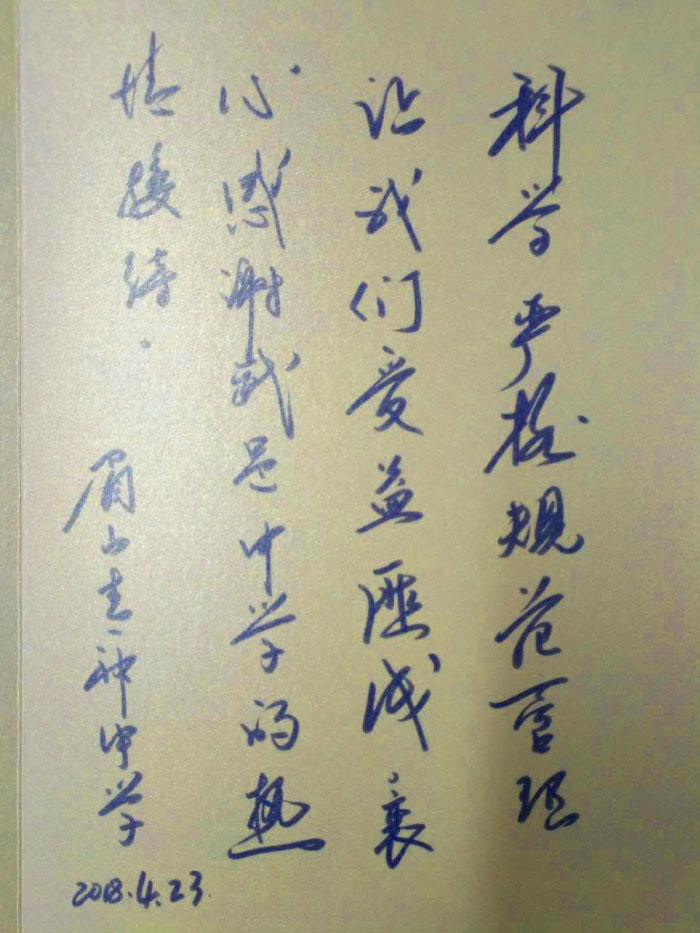 科学严格规范管理
让我们受益匪浅衷
心感谢武邑中学的热
情接待.
眉山青神中学
2018.4.23